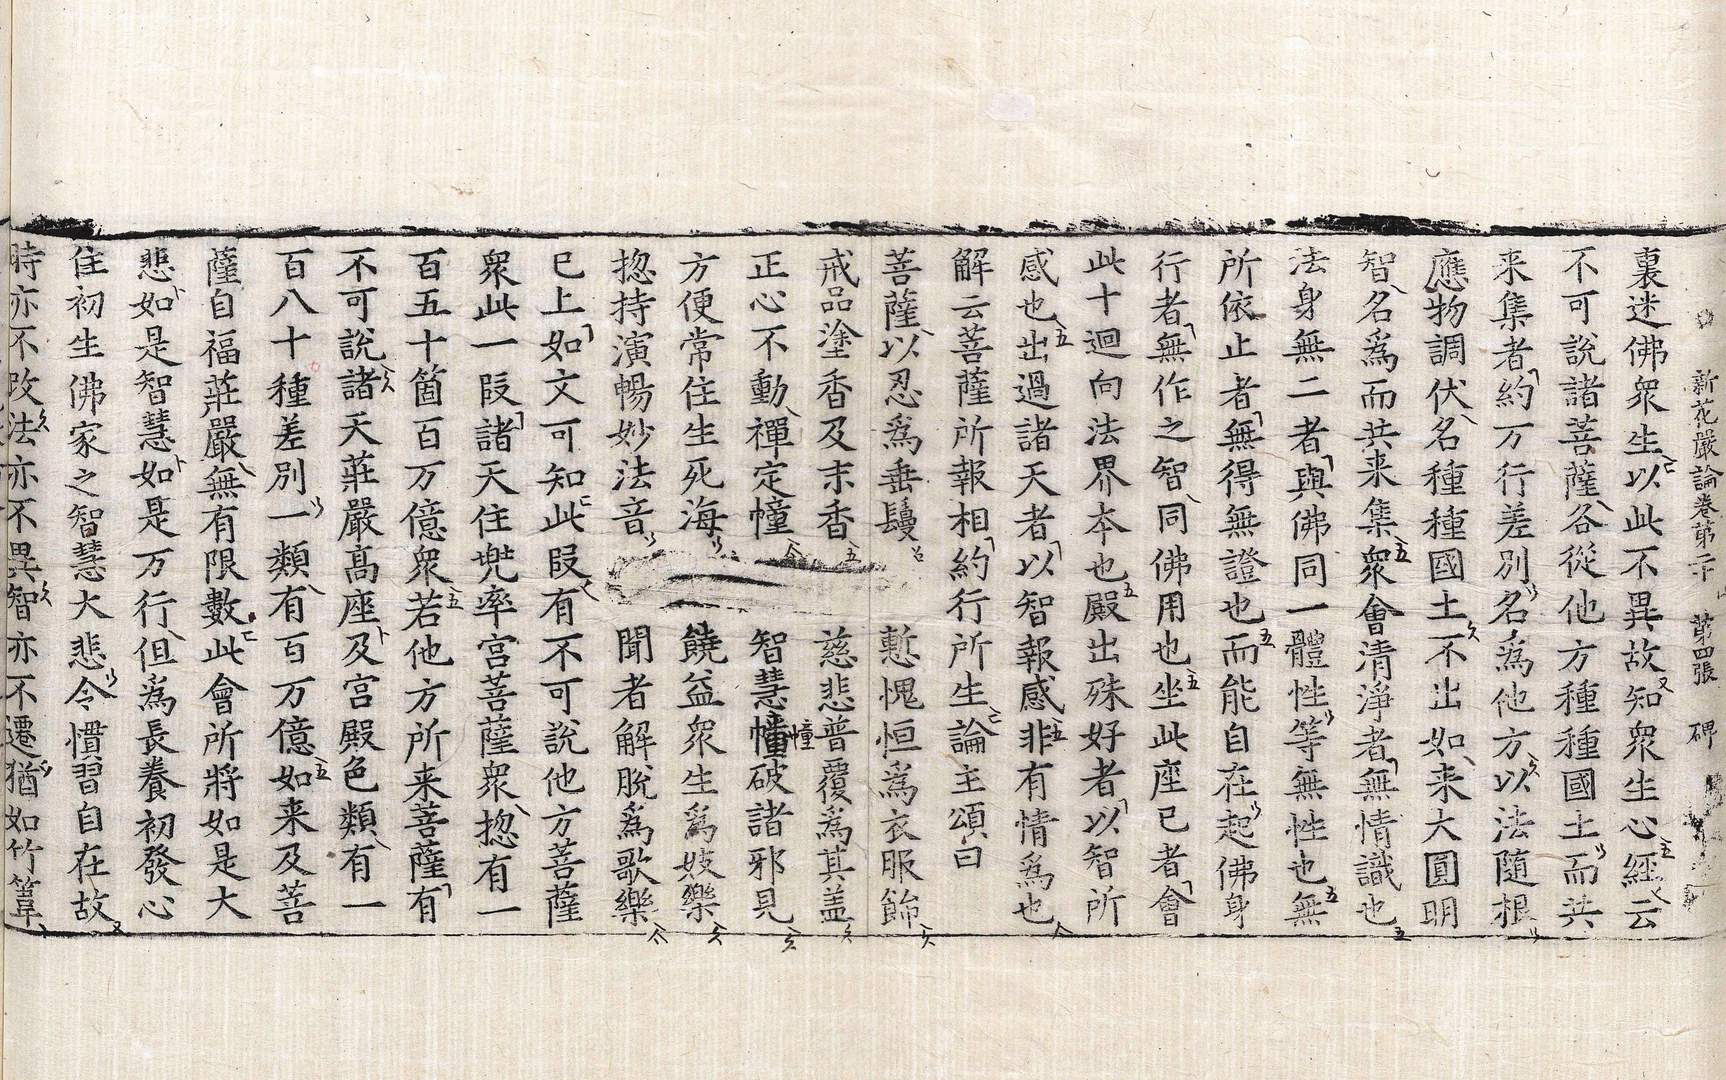 新花嚴論卷第二十 第四張 碑
裏迷佛衆生以此不異故知衆生心經云
不可說諸菩薩各從他方種種國土而共
来集者約万行差別名爲他方以法随根
應物調伏名種種國土不出如来大圓明
智名爲而共来集衆會清淨者無情識也
法身無二者與佛同一體性等無性也無
所依止者無得無證也而能自在起佛身
行者無作之智同佛用也坐此座已者會
此十迴向法界本也殿出殊好者以智所
感也出過諸天者以智報感非有情爲也
解云菩薩所報相約行所生論主頌曰
菩薩以忍爲垂鬘 慙愧恒爲衣服飾
戒品塗香及末香 慈悲普覆爲其盖
正心不動禪定幢 智慧幢破諸邪見
幢
方便常住生死海 饒益衆生爲妓樂
揔持演暢妙法音 聞者解脫爲歌樂
已上如文可知此段有不可說他方菩薩
衆此一段諸天住兠率宮菩薩衆揔有一
百五十箇百万億衆若他方所来菩薩有
不可說諸天莊嚴高座及宮殿色類有一
百八十種差別一類有百万億如来及菩
薩自福莊嚴無有限數此會所將如是大
悲如是智慧如是万行但爲長養初發心
住初生佛家之智慧大悲令慣習自在故
時亦不改法亦不異智亦不遷猶如竹葦